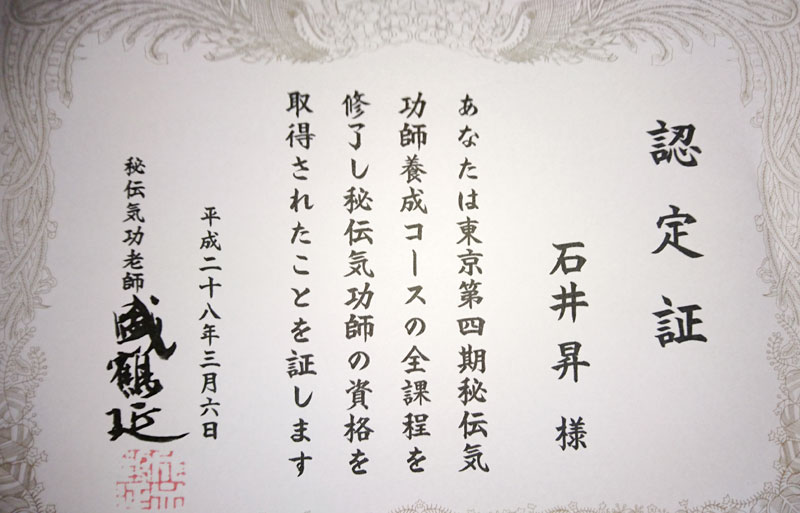 認定証
石井昇様
あなたは東京第四期秘伝気
功師養成コースの全課程を
修了し秘伝気功師の資格を
取得されたことを証します
平成二十八年三月六日
秘伝気功老師
盛鶴延